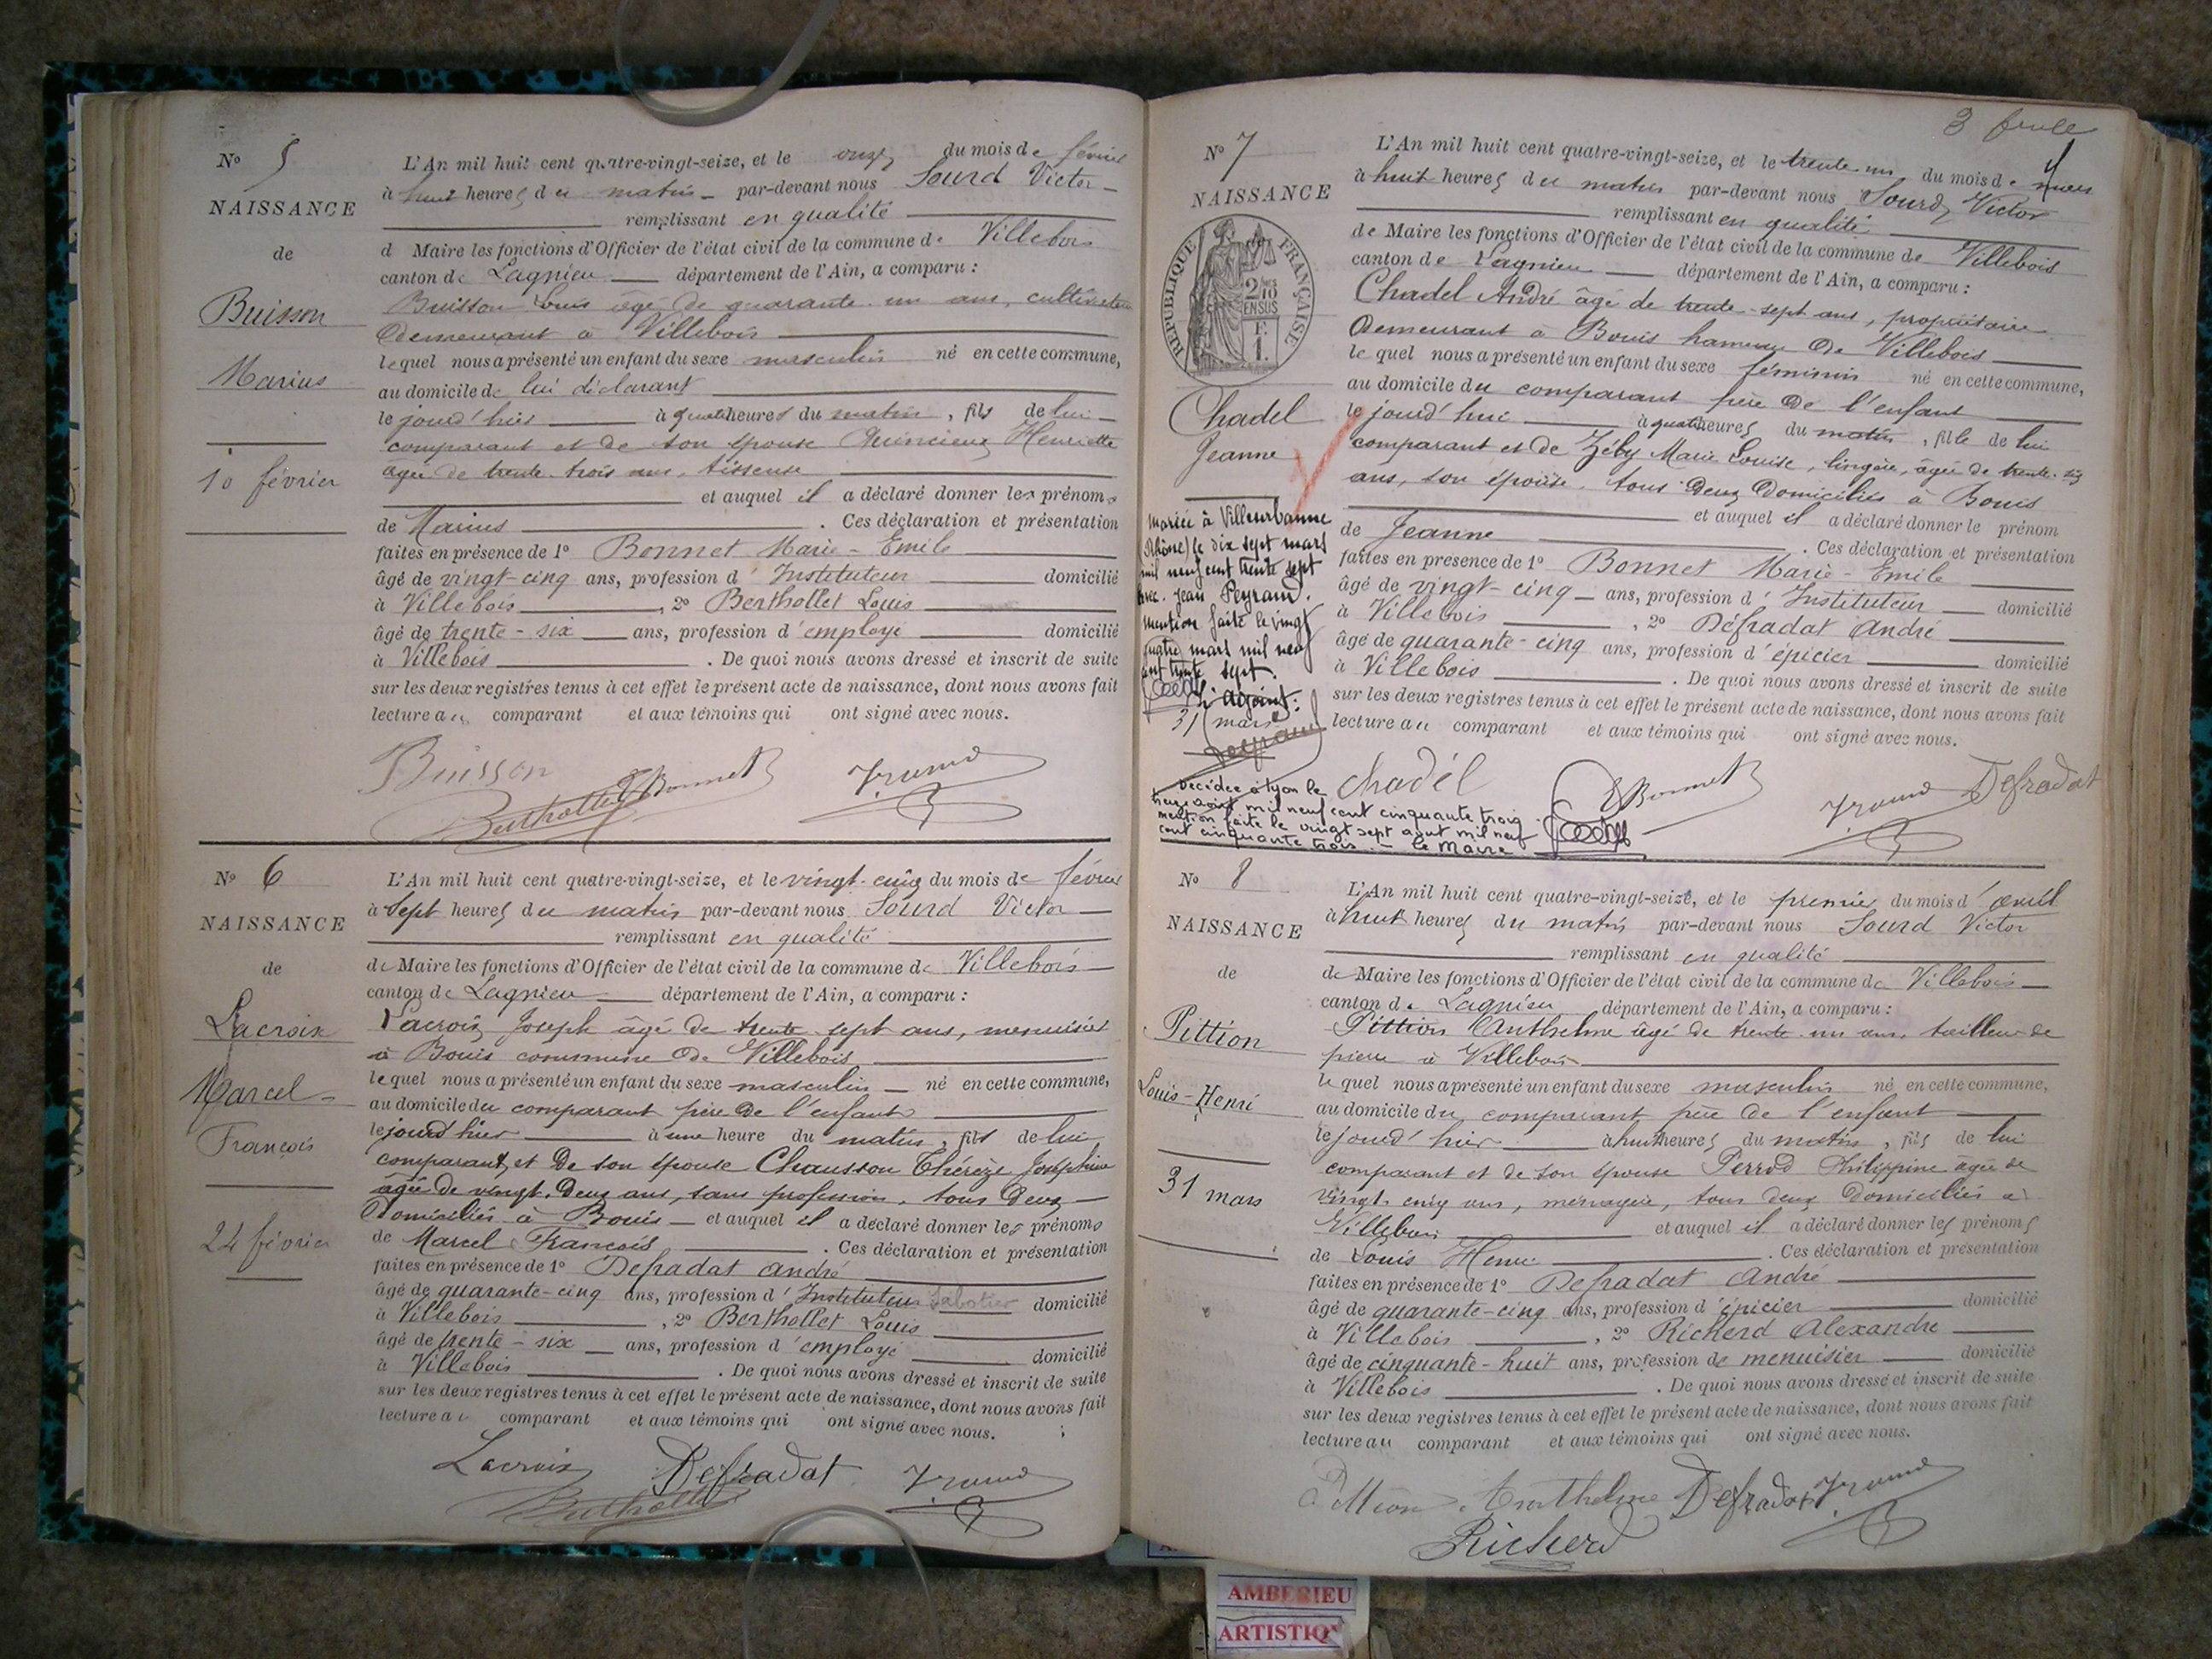 No 5
NAISSANCE
de
Buisson
Marius
10 février
L'An mil huit cent quatre-vingt-seize, et le onze du mois de février
à huit heures du matin par-devant nous Sourd Victor
remplissant en qualité
d Maire les fonctions d'Officier de l'état civil de la commune de Villebois
canton de Lagnieu département de l'Ain, a comparu :
Buisson Louis âgé de quarante-un ans, cultivateur
demeurant à Villebois
lequel nous a présenté un enfant du sexe masculin né en cette commune,
au domicile de lui déclarant
le jourd'hier à quatre heures du matin, fils de lui
comparant et de son épouse Quincieux Henriette
âgée de trente-trois ans, tisseuse
et auquel il a déclaré donner les prénoms
de Marius . Ces déclaration et présentation
faites en présence de 1° Bonnet Marie-Emile
âgé de vingt-cinq ans, profession d'Instituteur domicilié
à Villebois, 2° Berthollet Louis
âgé de trente-six ans, profession d'employé domicilié
à Villebois . De quoi nous avons dressé et inscrit de suite
sur les deux registres tenus à cet effet le présent acte de naissance, dont nous avons fait
lecture au comparant et aux témoins qui ont signé avec nous.
Buisson
Berthollet EBonnet
No 6
NAISSANCE
de
Lacroix
Marcel
François
24 février
L'An mil huit cent quatre-vingt-seize, et le vingt-cinq du mois de février
à sept heures du matin par-devant nous Sourd Victor
remplissant en qualité
de Maire les fonctions d'Officier de l'état civil de la commune de Villebois
canton de Lagnieu département de l'Ain, a comparu :
Lacroix Joseph âgé de trente-sept ans, menuisier
à Bouis commune de Villebois
lequel nous a présenté un enfant du sexe masculin né en cette commune,
au domicile du comparant père de l'enfant
le jourd'hier à une heure du matin, fils de lui
comparant et de son épouse Chausson Thérèze Joséphine
âgée de vingt-deux ans, sans profession, tous deux
domiciliés à Bouis et auquel il a déclaré donner les prénoms
de Marcel François . Ces déclaration et présentation
faites en présence de 1° Defradat André
âgé de quarante-cinq ans, profession d'Instituteur Sabotier domicilié
à Villebois, 2° Berthollet Louis
âgé de trente-six ans, profession d'employé domicilié
à Villebois . De quoi nous avons dressé et inscrit de suite
sur les deux registres tenus à cet effet le présent acte de naissance, dont nous avons fait
lecture au comparant et aux témoins qui ont signé avec nous.
Lacroix Defradat
Berthollet
No 7
NAISSANCE
RÉPUBLIQUE FRANÇAISE
2/10 EN SUS
F. 1.
Chadel
Jeanne
Mariée à Villeurbanne
(Rhône) le dix sept mars
mil neuf cent trente sept
avec Jean Peyraud.
Mention faite le vingt
quatre mars mil neuf
cent trente sept.
L'adjoint:
31 mars
Décédée à Lyon le
treize août mil neuf cent cinquante trois
mention faite le vingt sept août mil neuf
cent cinquante trois. - Le Maire
L'An mil huit cent quatre-vingt-seize, et le trente-un du mois de mars
à huit heures du matin par-devant nous Sourd Victor
remplissant en qualité
de Maire les fonctions d'Officier de l'état civil de la commune de Villebois
canton de Lagnieu département de l'Ain, a comparu :
Chadel André âgé de trente-sept ans, propriétaire
demeurant à Bouis hameau de Villebois
le quel nous a présenté un enfant du sexe féminin né en cette commune,
au domicile du comparant père de l'enfant
le jourd'hui à quatre heures du matin, fille de lui
comparant et de Zéby Marie Louise, lingère, âgée de trente-six
ans, son épouse. tous deux domiciliés à Bouis
et auquel il a déclaré donner le prénom
de Jeanne . Ces déclaration et présentation
faites en présence de 1° Bonnet Marie-Emile
âgé de vingt-cinq ans, profession d'Instituteur domicilié
à Villebois, 2° Défradat André
âgé de quarante-cinq ans, profession d'épicier domicilié
à Villebois . De quoi nous avons dressé et inscrit de suite
sur les deux registres tenus à cet effet le présent acte de naissance, dont nous avons fait
lecture au comparant et aux témoins qui ont signé avec nous.
Chadel EBonnet Defradat
No 8
NAISSANCE
de
Pittion
Louis-Henri
31 mars
L'An mil huit cent quatre-vingt-seize, et le premier du mois d'avril
à huit heures du matin par-devant nous Sourd Victor
remplissant en qualité
de Maire les fonctions d'Officier de l'état civil de la commune de Villebois
canton de Lagnieu département de l'Ain, a comparu :
Pittion Anthelme âgé de trente-un ans, tailleur de
pierre à Villebois
le quel nous a présenté un enfant du sexe masculin né en cette commune,
au domicile du comparant père de l'enfant
le jourd'hier à huit heures du matin, fils de lui
comparant et de son épouse Perrod Philippine âgée de
vingt-cinq ans, ménagère, tous deux domiciliés à
Villebois et auquel il a déclaré donner les prénoms
de Louis Henri . Ces déclaration et présentation
faites en présence de 1° Defradat André
âgé de quarante-cinq ans, profession d'épicier domicilié
à Villebois, 2° Richerd Alexandre
âgé de cinquante-huit ans, profession de menuisier domicilié
à Villebois . De quoi nous avons dressé et inscrit de suite
sur les deux registres tenus à cet effet le présent acte de naissance, dont nous avons fait
lecture au comparant et aux témoins qui ont signé avec nous.
Pittion Anthelme Defradat
Richerd
AMBERIEU
ARTISTIQ